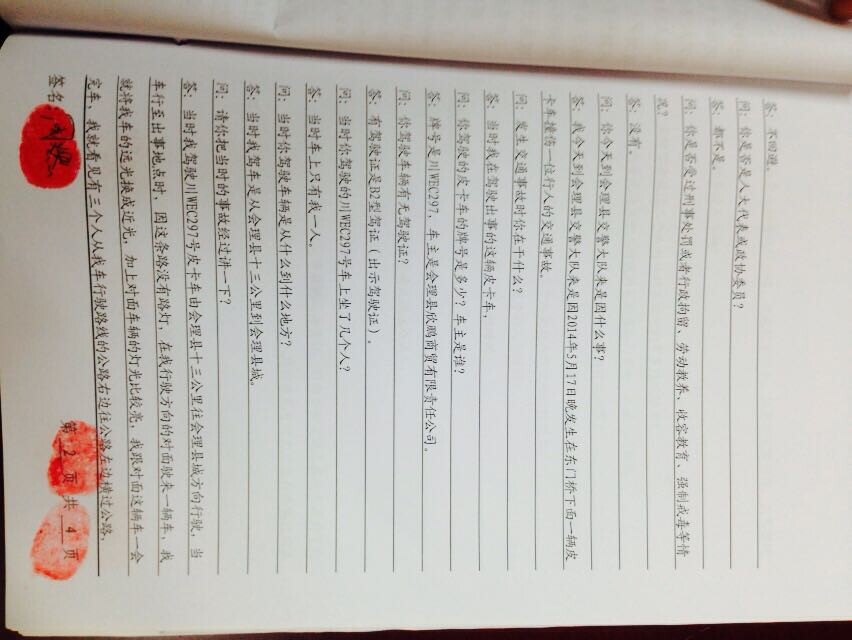 答：不回避。
问：你是否是人大代表或政协委员？
答：都不是。
问：你是否受过刑事处罚或者行政拘留、劳动教养、收容教育、强制戒毒等情
况？
答：没有。
问：你今天到会理县交警大队来是因什么事？
答：我今天到会理县交警大队来是因2014年5月17日晚发生在东门桥下面一辆皮
卡车撞伤一位行人的交通事故。
问：发生交通事故时你在干什么？
答：当时我在驾驶出事的这辆皮卡车，
问：你驾驶的皮卡车的牌号是多少？车主是谁？
答：牌号是川WEC297、车主是会理县欣鹏商贸有限责任公司。
问：你驾驶车辆有无驾驶证？
答：有驾驶证是B2型驾证（出示驾驶证）。
问：当时你驾驶的川WEC297号车上坐了几个人？
答：当时车上只有我一人。
问：当时你驾驶车辆是从什么到什么地方？
答：当时我驾车是从会理县十三公里到会理县城。
问：请你把当时的事故经过讲一下？
答：当时我驾驶川WEC297号皮卡车由会理县十三公里往会理县城方向行驶，当
车行至出事地点时，因这条路没有路灯，在我行驶方向的对面驶来一辆车，我
就将我车的远光换成近光，加上对面车辆的灯光比较亮，我跟对面这辆车一会
完车，我就看见有三个人从我车行驶路线的公路右边往公路左边横过公路，
签名
第 2 页 共 4 页